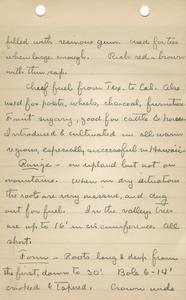 filled with resinous gum. used for ties
when large enough. Rich red-brown
with thin sap.
Chief fuel from Tex. to Cal. Also
used for posts, wheels, charcoal, furniture
Fruit sugary, good for cattle & horses
Introduced & cultivated in all warm
regions, especially successful in Hawaii
Range - on upland but not on
mountains. When in dry situations
the roots are very massive, and dug
out for fuel. In the valleys trees
are up to 16' in circumference. All
short.
Form - Roots long & deep from
the first, down to 20'. Bole 6-14'
crooked & tapered. Crown wide